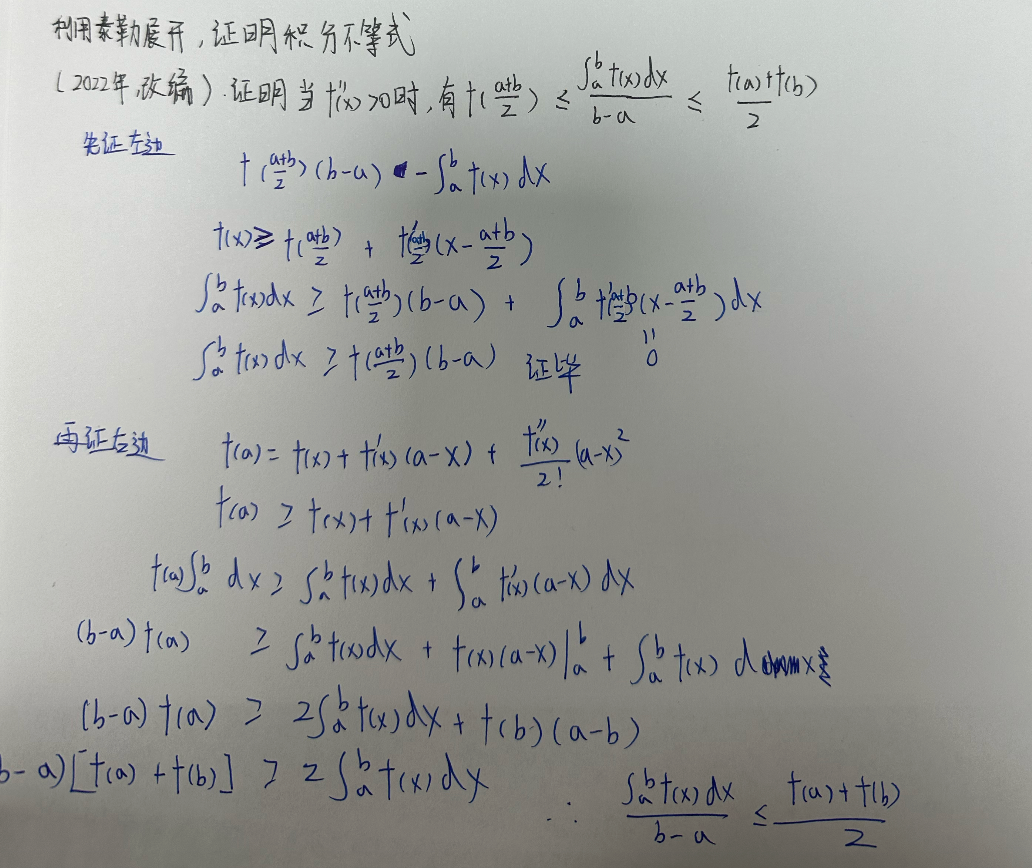 利用泰勒展开，证明积分不等式
(2022年,改编).证明当f''(x)>0时,有f(\frac{a+b}{2}) ≤ \frac{∫_a^b f(x)dx}{b-a} ≤ \frac{f(a)+f(b)}{2}
先证左边
f(\frac{a+b}{2})(b-a) - ∫_a^b f(x)dx
f(x) ≥ f(\frac{a+b}{2}) + f'(\frac{a+b}{2})(x-\frac{a+b}{2})
∫_a^b f(x)dx ≥ f(\frac{a+b}{2})(b-a) + ∫_a^b f'(\frac{a+b}{2})(x-\frac{a+b}{2})dx
=0
∫_a^b f(x)dx ≥ f(\frac{a+b}{2})(b-a) 证毕
再证右边
f(a) = f(x) + f'(x)(a-x) + \frac{f''(x)}{2!}(a-x)^2
f(a) ≥ f(x) + f'(x)(a-x)
f(a)∫_a^b dx ≥ ∫_a^b f(x)dx + ∫_a^b f'(x)(a-x)dx
(b-a)f(a) ≥ ∫_a^b f(x)dx + f(x)(a-x)|_a^b + ∫_a^b f(x)dx
(b-a)f(a) ≥ 2∫_a^b f(x)dx + f(b)(a-b)
b-a)[f(a)+f(b)] ≥ 2∫_a^b f(x)dx
∴ \frac{∫_a^b f(x)dx}{b-a} ≤ \frac{f(a)+f(b)}{2}